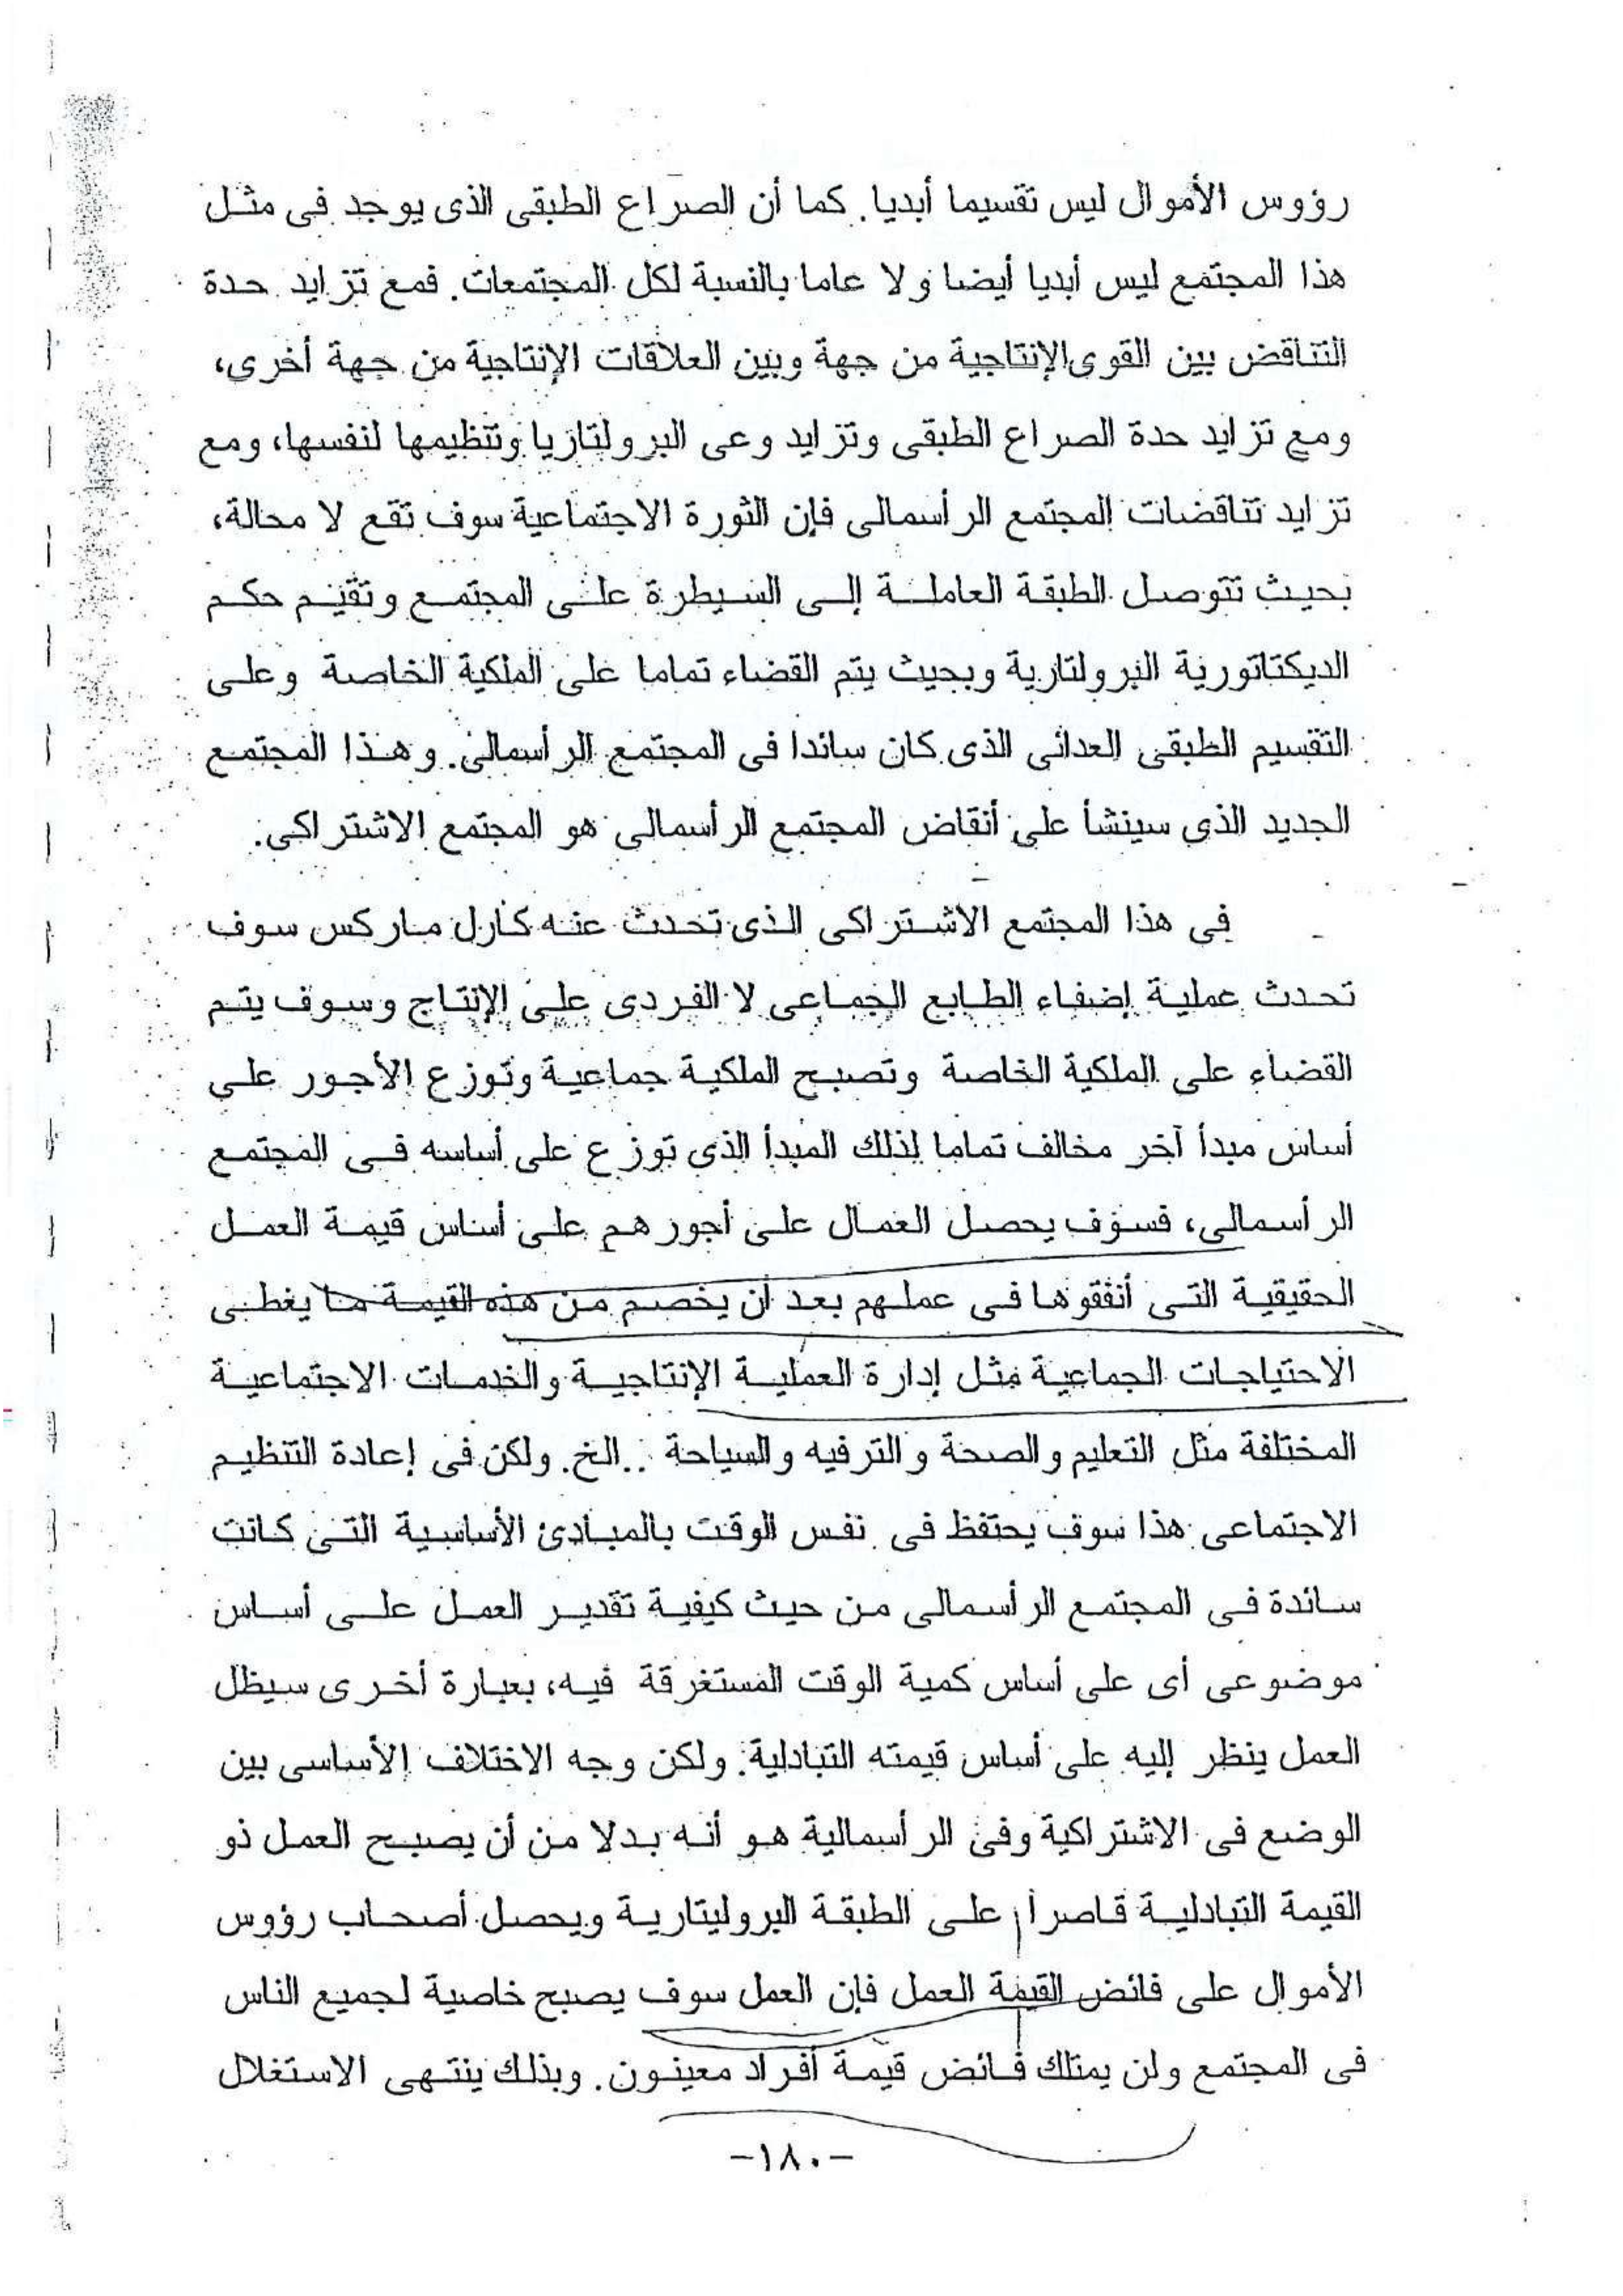 رؤوس الأموال ليس تقسيما أبديا. كما أن الصراع الطبقى الذى يوجد فى مثل
هذا المجتمع ليس أبديا أيضا ولا عاما بالنسبة لكل المجتمعات. فمع تزايد حدة
التناقض بين القوى الإنتاجية من جهة وبين العلاقات الإنتاجية من جهة أخرى،
ومع تزايد حدة الصراع الطبقى وتزايد وعى البرولتاريا وتنظيمها لنفسها، ومع
تزايد تناقضات المجتمع الرأسمالى فإن الثورة الاجتماعية سوف تقع لا محالة،
بحيث تتوصل الطبقة العاملة إلى السيطرة على المجتمع وتقيم حكم
الديكتاتورية البرولتارية وبحيث يتم القضاء تماما على الملكية الخاصة وعلى
التقسيم الطبقى العدائى الذى كان سائدا فى المجتمع الرأسمالى. وهذا المجتمع
الجديد الذى سينشأ على أنقاض المجتمع الرأسمالى هو المجتمع الاشتراكى.
فى هذا المجتمع الاشتراكى الذى تحدث عنه كارل ماركس سوف
تحدث عملية إضفاء الطابع الجماعى لا الفردى على الإنتاج وسوف يتم
القضاء على الملكية الخاصة وتصبح الملكية جماعية وتوزع الأجور على
أساس مبدأ آخر مخالف تماما لذلك المبدأ الذى توزع على أساسه فى المجتمع
الرأسمالى، فسوف يحصل العمال على أجورهم على أساس قيمة العمل
الحقيقية التى أنفقوها فى عملهم بعد أن يخصم من هذه القيمة ما يغطى
الاحتياجات الجماعية مثل إدارة العملية الإنتاجية والخدمات الاجتماعية
المختلفة مثل التعليم والصحة والترفيه والسياحة ..الخ. ولكن فى إعادة التنظيم
الاجتماعى هذا سوف يحتفظ فى نفس الوقت بالمبادئ الأساسية التى كانت
سائدة فى المجتمع الرأسمالى من حيث كيفية تقدير العمل على أساس
موضوعى أى على أساس كمية الوقت المستغرقة فيه، بعبارة أخرى سيظل
العمل ينظر إليه على أساس قيمته التبادلية. ولكن وجه الاختلاف الأساسى بين
الوضع فى الاشتراكية وفى الرأسمالية هو أنه بدلا من أن يصبح العمل ذو
القيمة التبادلية قاصرا على الطبقة البروليتارية ويحصل أصحاب رؤوس
الأموال على فائض القيمة العمل فإن العمل سوف يصبح خاصية لجميع الناس
فى المجتمع ولن يمتلك فائض قيمة أفراد معينون. وبذلك ينتهى الاستغلال
-١٨٠-